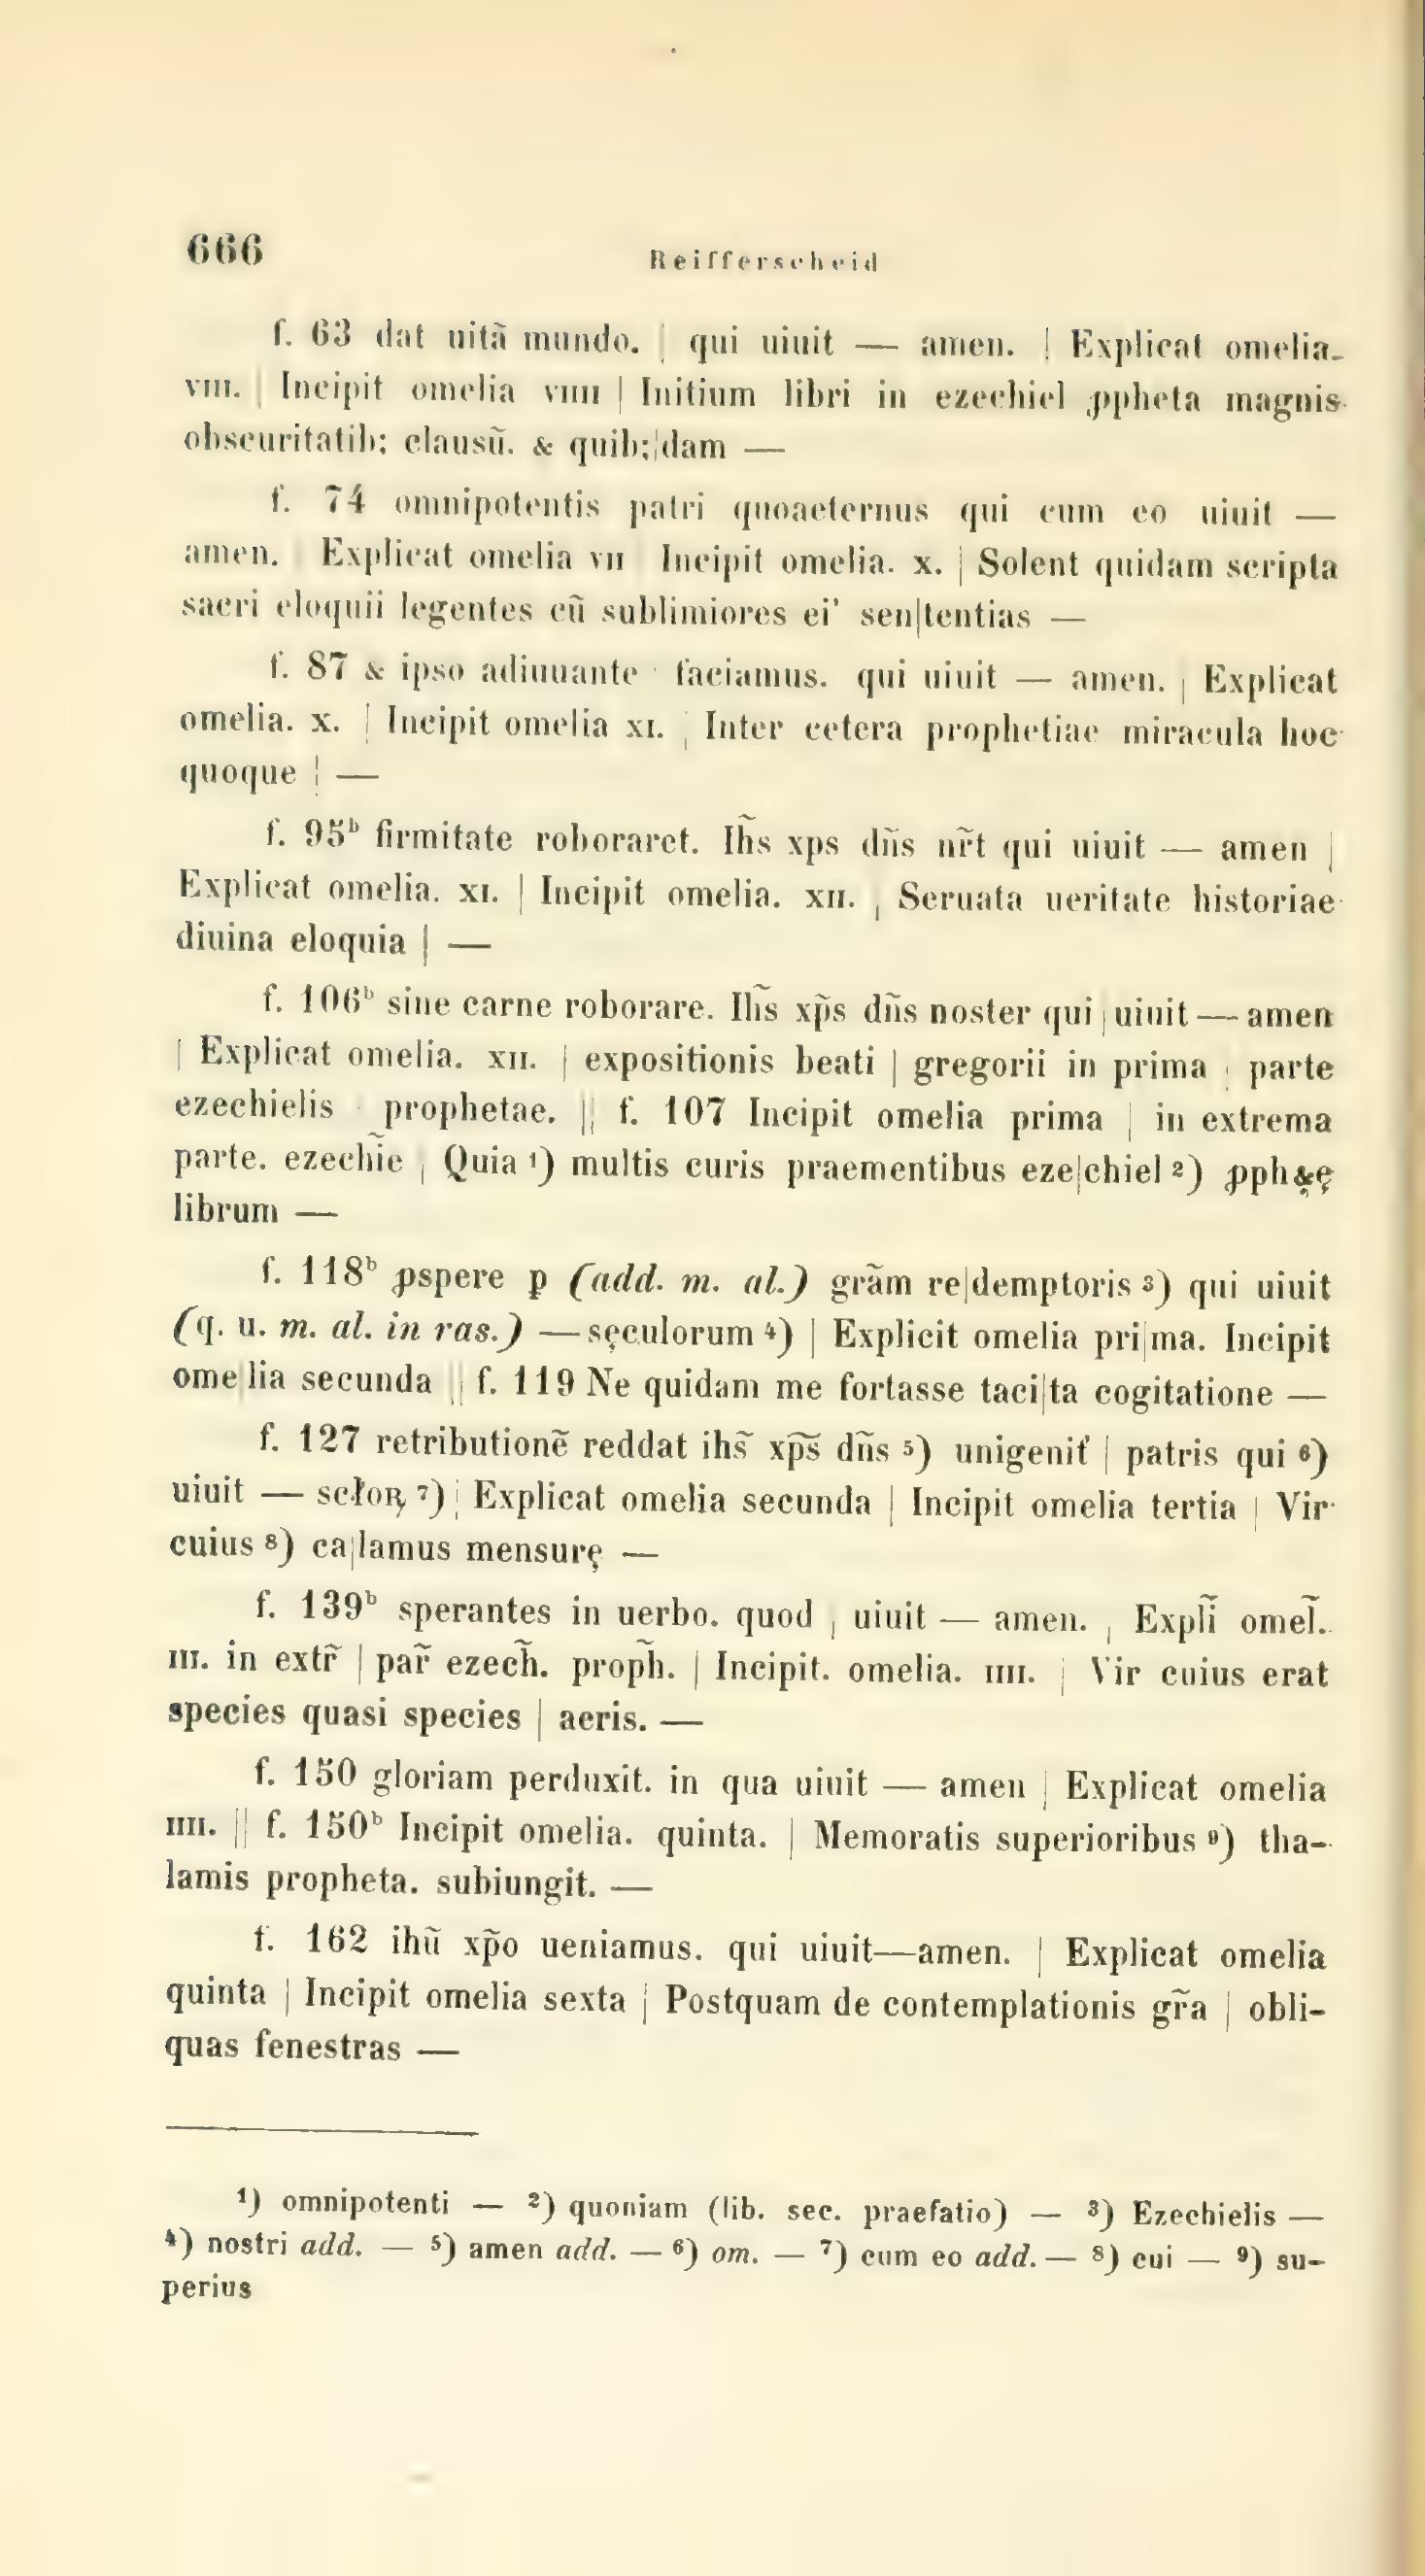 666
Reifferscheid
f. 63 dat uitā mundo. | qui uiuit — amen. | Explicat omelia.
VIII. | Incipit omelia VIIII | Initium libri in ezechiel ꝓpheta magnis
obscuritatib; clausū. & quib;|dam —
f. 74 omnipotentis patri quoaeternus qui cum eo uiuit —
amen. | Explicat omelia VII | Incipit omelia. X. | Solent quidam scripta
sacri eloquii legentes cū sublimiores ei' sen|tentias —
f. 87 & ipso adiuuante · faciamus. qui uiuit — amen. | Explicat
omelia. X. | Incipit omelia XI. | Inter cetera prophetiae miracula hoc
quoque | —
f. 95ᵇ firmitate roboraret. Ih̃s xps dñs nr̃t qui uiuit — amen |
Explicat omelia. XI. | Incipit omelia. XII. | Seruata ueritate historiae
diuina eloquia | —
f. 106ᵇ sine carne roborare. Ih̃s xp̃s dñs noster qui | uiuit — amen
| Explicat omelia. XII. | expositionis beati | gregorii in prima | parte
ezechielis | prophetae. || f. 107 Incipit omelia prima | in extrema
parte. ezechĩe | Quia ¹) multis curis praementibus eze|chiel ²) ꝓph&ę
librum —
f. 118ᵇ ꝓspere ꝑ (add. m. al.) grãm re|demptoris ³) qui uiuit
(q. u. m. al. in ras.) — sęculorum ⁴) | Explicit omelia pri|ma. Incipit
ome|lia secunda || f. 119 Ne quidam me fortasse taci|ta cogitatione —
f. 127 retributionē reddat ihs̃ xp̃s̃ dñs ⁵) unigenit̉ | patris qui ⁶)
uiuit — scłoꝝ ⁷) | Explicat omelia secunda | Incipit omelia tertia | Vir
cuius ⁸) ca|lamus mensurę —
f. 139ᵇ sperantes in uerbo. quod | uiuit — amen. | Expl̃i omel̃.
III. in extr̃ | par̃ ezech̃. proph̃. | Incipit. omelia. IIII. | Vir cuius erat
species quasi species | aeris. —
f. 150 gloriam perduxit. in qua uiuit — amen | Explicat omelia
IIII. || f. 150ᵇ Incipit omelia. quinta. | Memoratis superioribus ⁹) tha-
lamis propheta. subiungit. —
f. 162 ihū xp̃o ueniamus. qui uiuit—amen. | Explicat omelia
quinta | Incipit omelia sexta | Postquam de contemplationis gr̃a | obli-
quas fenestras —
¹) omnipotenti — ²) quoniam (lib. sec. praefatio) — ³) Ezechielis —
⁴) nostri add. — ⁵) amen add. — ⁶) om. — ⁷) cum eo add. — ⁸) cui — ⁹) su-
perius